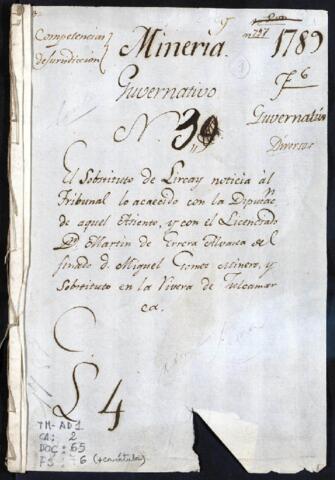 Competencias
de Jurudiccion
Mineria.
nº 747
1789
Guvernativo
Fs 6
Nº. 3
Guvernativo
Diversos
El Sobstituto de Lircay noticia àl
Tribunal lo acaecido con la Diputac.
de aquel Asiento, y con el Licenciado
Dn Martin de Errera Alvarez
finado d. Miguel Gomez Minero, y
Sobstituto en la Rivera de Julcamar
ca.
L 4
TM-AD1
CA: 2
DOC: 65
FS: 6 (+carátula)